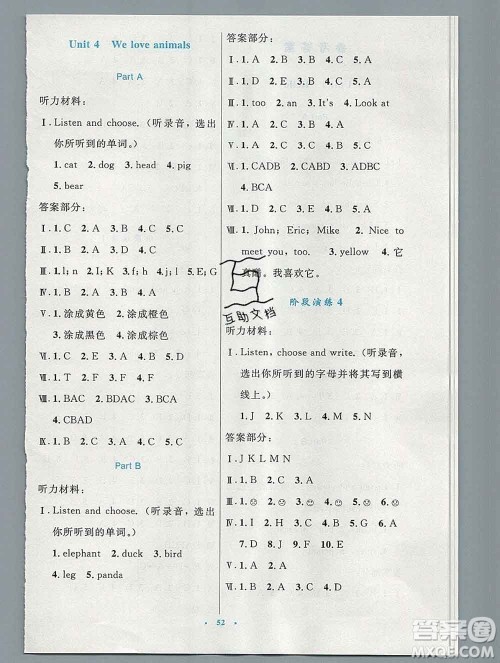 Unit 4 We love animals
Part A
听力材料：
Ⅰ. Listen and choose.（听录音，选出
你所听到的单词。）
1. cat 2. dog 3. head 4. pig
5. bear
答案部分：
Ⅰ. 1. C 2. A 3. B 4. C 5. C
Ⅱ. 1. D 2. A 3. A 4. C 5. B
Ⅲ. 1. I; n 2. I; h 3. j; I 4. i 5. E; G
Ⅳ. 1. C 2. B 3. C 4. A 5. B
Ⅴ. 1. 涂成黄色 2. 涂成橙色
3. 涂成黑色 4. 涂成棕色
Ⅶ. 1. T 2. F 3. F
Ⅷ. 1. B 2. BDAC 3. BAC
4. CBAD
Ⅸ. 1. C 2. C 3. A 4. C 5. B
Part B
听力材料：
Ⅰ. Listen and choose.（听录音，选出
你所听到的单词。）
1. elephant 2. duck 3. bird
4. leg 5. panda
答案部分：
Ⅰ. 1. A 2. B 3. A 4. C 5. A
Ⅱ. 1. D 2. E 3. B 4. A 5. C
Ⅲ. 1. too 2. an 3. It's 4. Look at
Ⅳ. 1. A 2. B 3. B 4. A
Ⅵ. 1. CADB 2. CAD 3. ADBC
4. BCA
Ⅶ. 1. D 2. C 3. A 4. B
Ⅷ. 1. John; Eric; Mike 2. Nice to
meet you, too. 3. yellow 4. 它
真酷。我喜欢它。
阶段演练 4
听力材料：
Ⅰ. Listen, choose and write.（听录音，
选出你所听到的字母并将其写到横
线上。）
1. J 2. K 3. L 4. M 5. N
答案部分：
Ⅰ. J K L M N
Ⅱ. 1. B 2. C 3. A 4. C 5. A
Ⅳ. 1. D 2. E 3. B 4. A 5. C
Ⅳ. 1. F 2. A 3. B 4. G
Ⅴ. 1. A 2. A 3. C 4. C 5. B
Ⅵ. 1. C 2. A 3. D 4. B
Ⅶ. 1. B 2. A 3. C 4. C
互助文档
52
答案圈
MXQE.COM